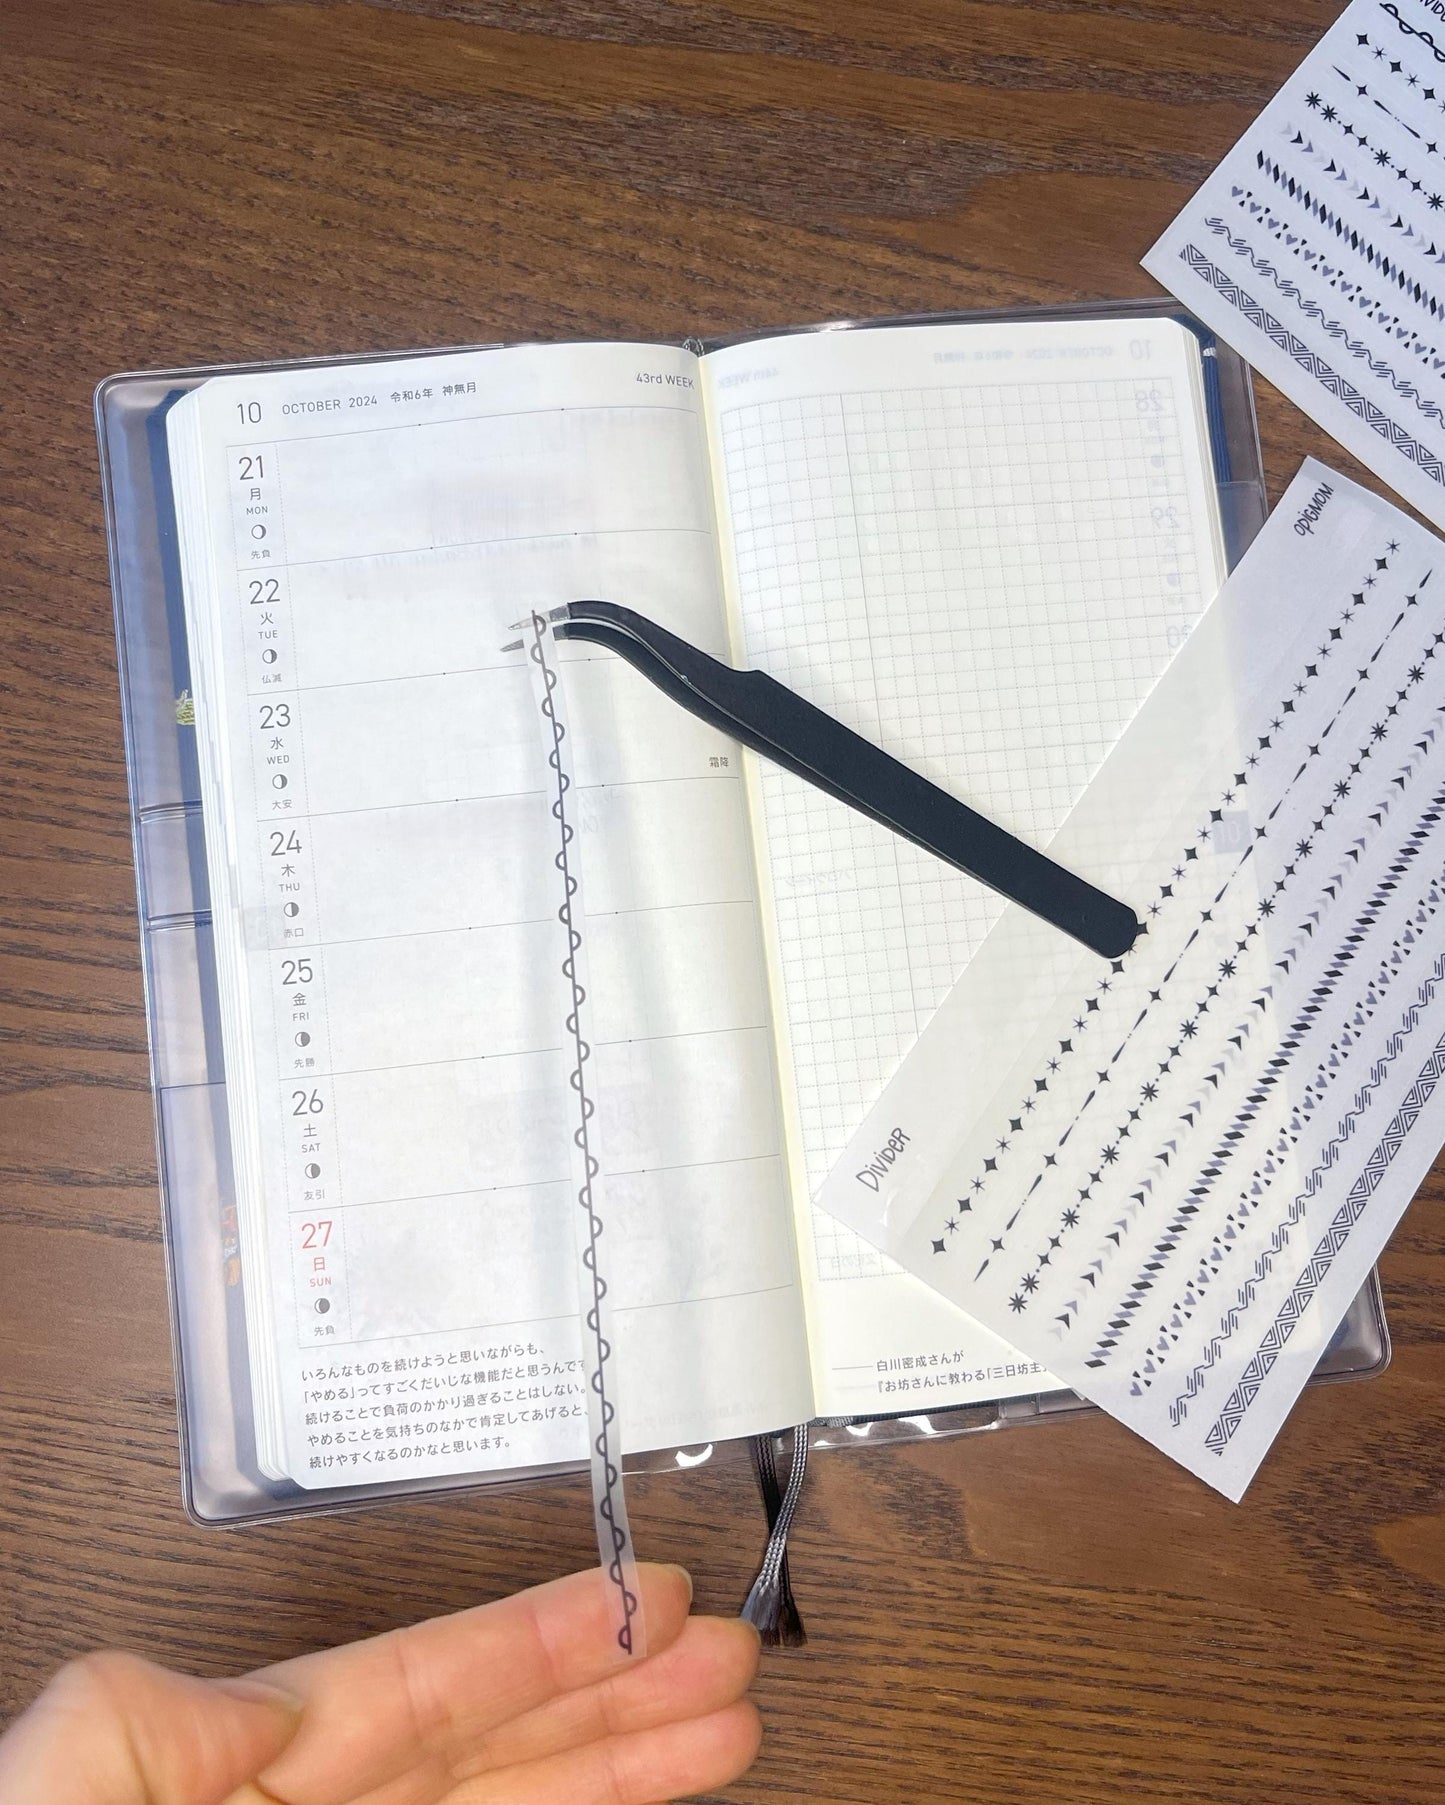 10 OCTOBER 2024 令和6年 神無月 43rd WEEK
21
月
MON
先負
22
火
TUE
仏滅
23
水
WED
大安
霜降
24
木
THU
赤口
25
金
FRI
先勝
26
土
SAT
友引
27
日
SUN
先負
いろんなものを続けようと思いながらも、
「やめる」ってすごくだいじな機能だと思うんです
続けることで負荷のかかり過ぎることはしない。
やめることを気持ちのなかで肯定してあげると、
続けやすくなるのかなと思います。
白川密成さんが
『お坊さんに教わる「三日坊主
opigmom
Divider